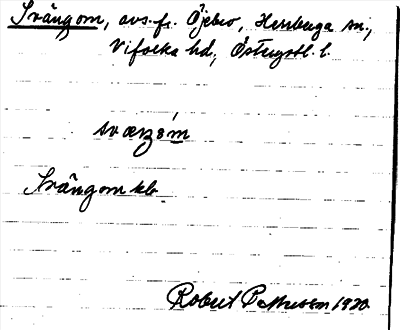 Svängom, avs. fr. Öjebro, Herrberga sn,
Vifolka hd, Östergötl. l.
Svängom kb.
Robert Pettersson 1920